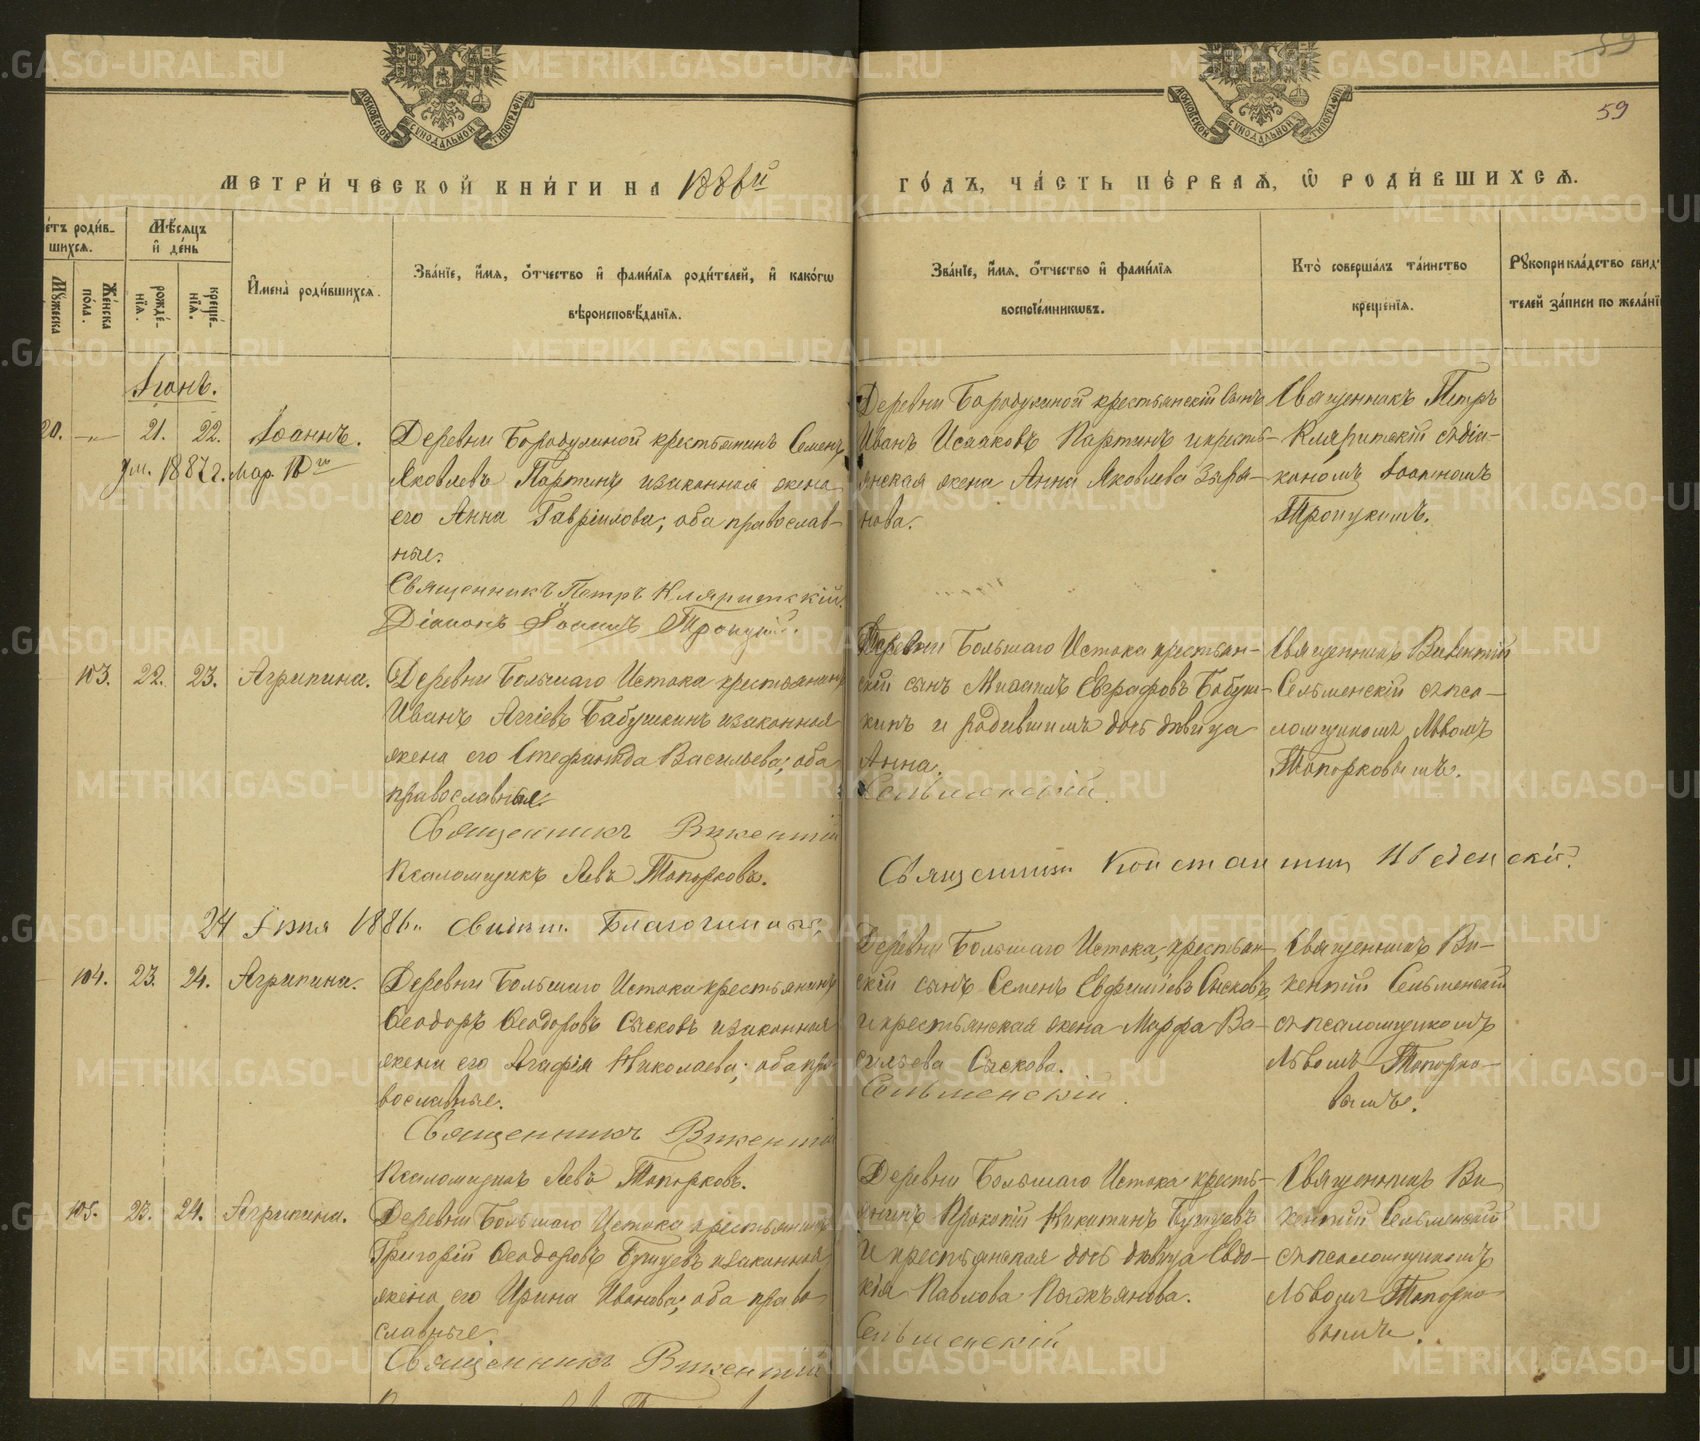 59
59
МОСКОВСКОЙ СѴНОДАЛЬНОЙ ТИПОГРАФІИ
МОСКОВСКОЙ СѴНОДАЛЬНОЙ ТИПОГРАФІИ
МЕТРИ́ЧЕСКОЙ КНИ́ГИ НА 1886й
ГО́ДЪ, ЧА́СТЬ ПЕ́РВАѦ, Ѡ РОДИ́ВШИХСѦ.
е́тъ роди́в-
шихсѧ.
Мѣ́сѧцъ
и҆ де́нь
Мꙋ́жеска
Же́нска
по́ла.
рожде́-
нїѧ.
креще́-
нїѧ.
И҆мена̀ роди́вшихсѧ.
Зва́нїе, и҆́мѧ, ѻ҆́тчество и҆ фами́лїѧ роди́телей, и҆ како́гѡ
вѣроисповѣ́данїѧ.
Зва́нїе, и҆́мѧ, ѻ҆́тчество и҆ фами́лїѧ
воспрїе́мникѡвъ.
Кто̀ соверша́лъ та́инство
креще́нїѧ.
Рꙋкоприкла́дство свид
телей за́писи по жела́нї
Іюнь.
20. —„— 21. 22. Іоаннъ.
ум. 1887 г. мар. 
Деревни Бородулиной крестьянинъ Семенъ
Яковлевъ Партинъ и законная жена
его Анна Гавріилова; оба православ-
ные.
Священникъ Петръ Кляритскій.
Діаконъ Іоаннъ Троицкій.
Деревни Бородулиной крестьянскій сынъ
Иванъ Исааковъ Партинъ и кресть-
янская жена Анна Яковлева Зыря-
нова.
Священникъ Петръ
Кляритскій съ діа-
кономъ Іоанномъ
Троицкимъ.
103. 22. 23. Агрипина.
Деревни Большаго Истока крестьянинъ
Иванъ Аггіевъ Бабушкинъ и законная
жена его Стефанида Васильева; оба
православные.
Священникъ Викентій
Псаломщикъ Левъ Топорковъ.
Деревни Большаго Истока крестьян-
скій сынъ Михаилъ Евграфовъ Бабуш-
кинъ и родившимъ дочь дѣвица
Анна.
Сельменскій.
Священникъ Викентій
Сельменскій съ пса-
ломщикомъ Львомъ
Топорковымъ.
Священникъ Константинъ
24 Іюня 1886 г. Свидѣт. Благочинный,
104. 23. 24. Агрипина.
Деревни Большаго Истока крестьянинъ
Ѳеодоръ Ѳеодоровъ Сысковъ и законная
жена его Агафія Николаева; оба пра-
вославные.
Священникъ Викентій
Псаломщикъ Левъ Топорковъ.
Деревни Большаго Истока, крестьян-
скій сынъ Семенъ Евфиміевъ Сысковъ,
и крестьянская жена Марфа Ва-
сильева Сыскова.
Сельменскій.
Священникъ Ви-
кентій Сельменскій
съ псаломщикомъ
Львомъ Топорко-
вымъ.
105. 23. 24. Агрипина.
Деревни Большаго Истока крестьянинъ
Григорій Ѳеодоровъ и законная
жена его Ирина Иванова; оба право-
славные.
Священникъ Викентій
Деревни Большаго Истока кресть-
янинъ Прокопій Никитинъ
и крестьянская дочь дѣвица Евдо-
кія Павлова
Сельменскій
Священникъ Ви-
кентій Сельменскій
съ псаломщикомъ
Львомъ Топорко-
вымъ.